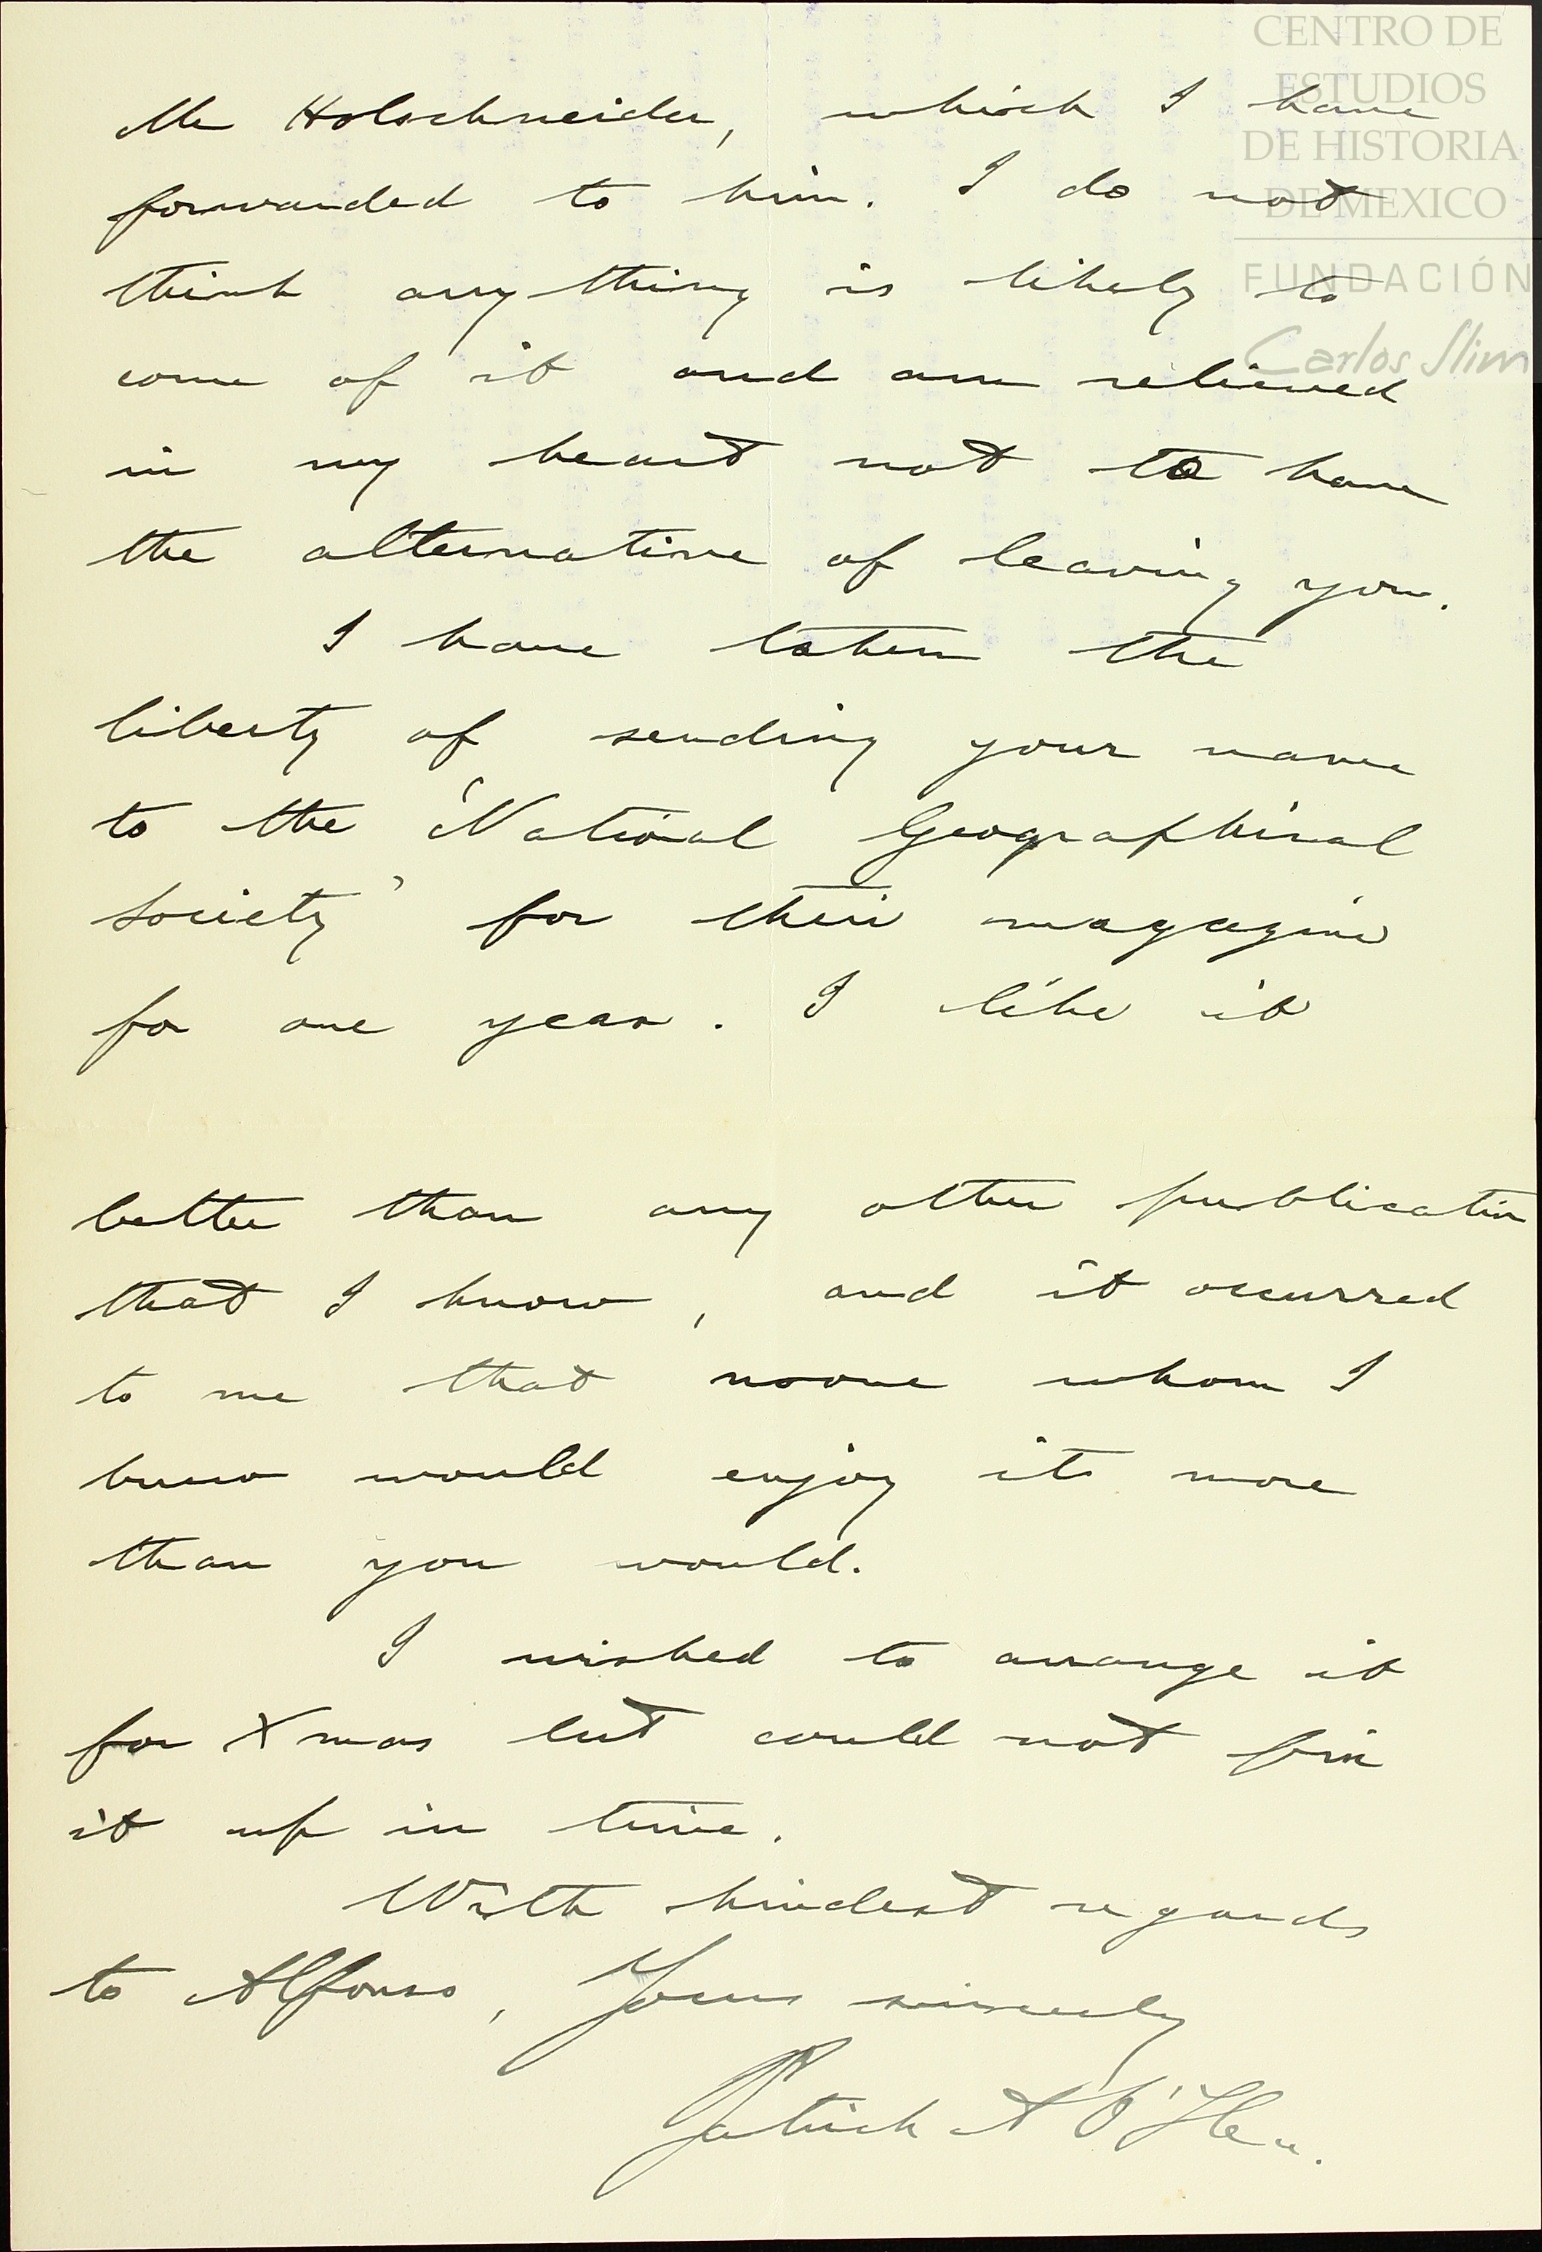 CENTRO DE
ESTUDIOS
DE HISTORIA
DE MEXICO
FUNDACIÓN
Carlos Slim
Mr Holschneider, which I have
forwarded to him. I do not
think anything is likely to
come of it and am relieved
in my heart not to have
the alternative of leaving you.
I have taken the
liberty of sending your name
to the 'National Geographical
Society' for their magazine
for one year. I like it
better than any other publication
that I know, and it occurred
to me that noone whom I
knew would enjoy it more
than you would.
I wished to arrange it
for Xmas but could not fix
it up in time.
With kindest regards
to Alfonso, Yours sincerely
Patrick A O'Hea.